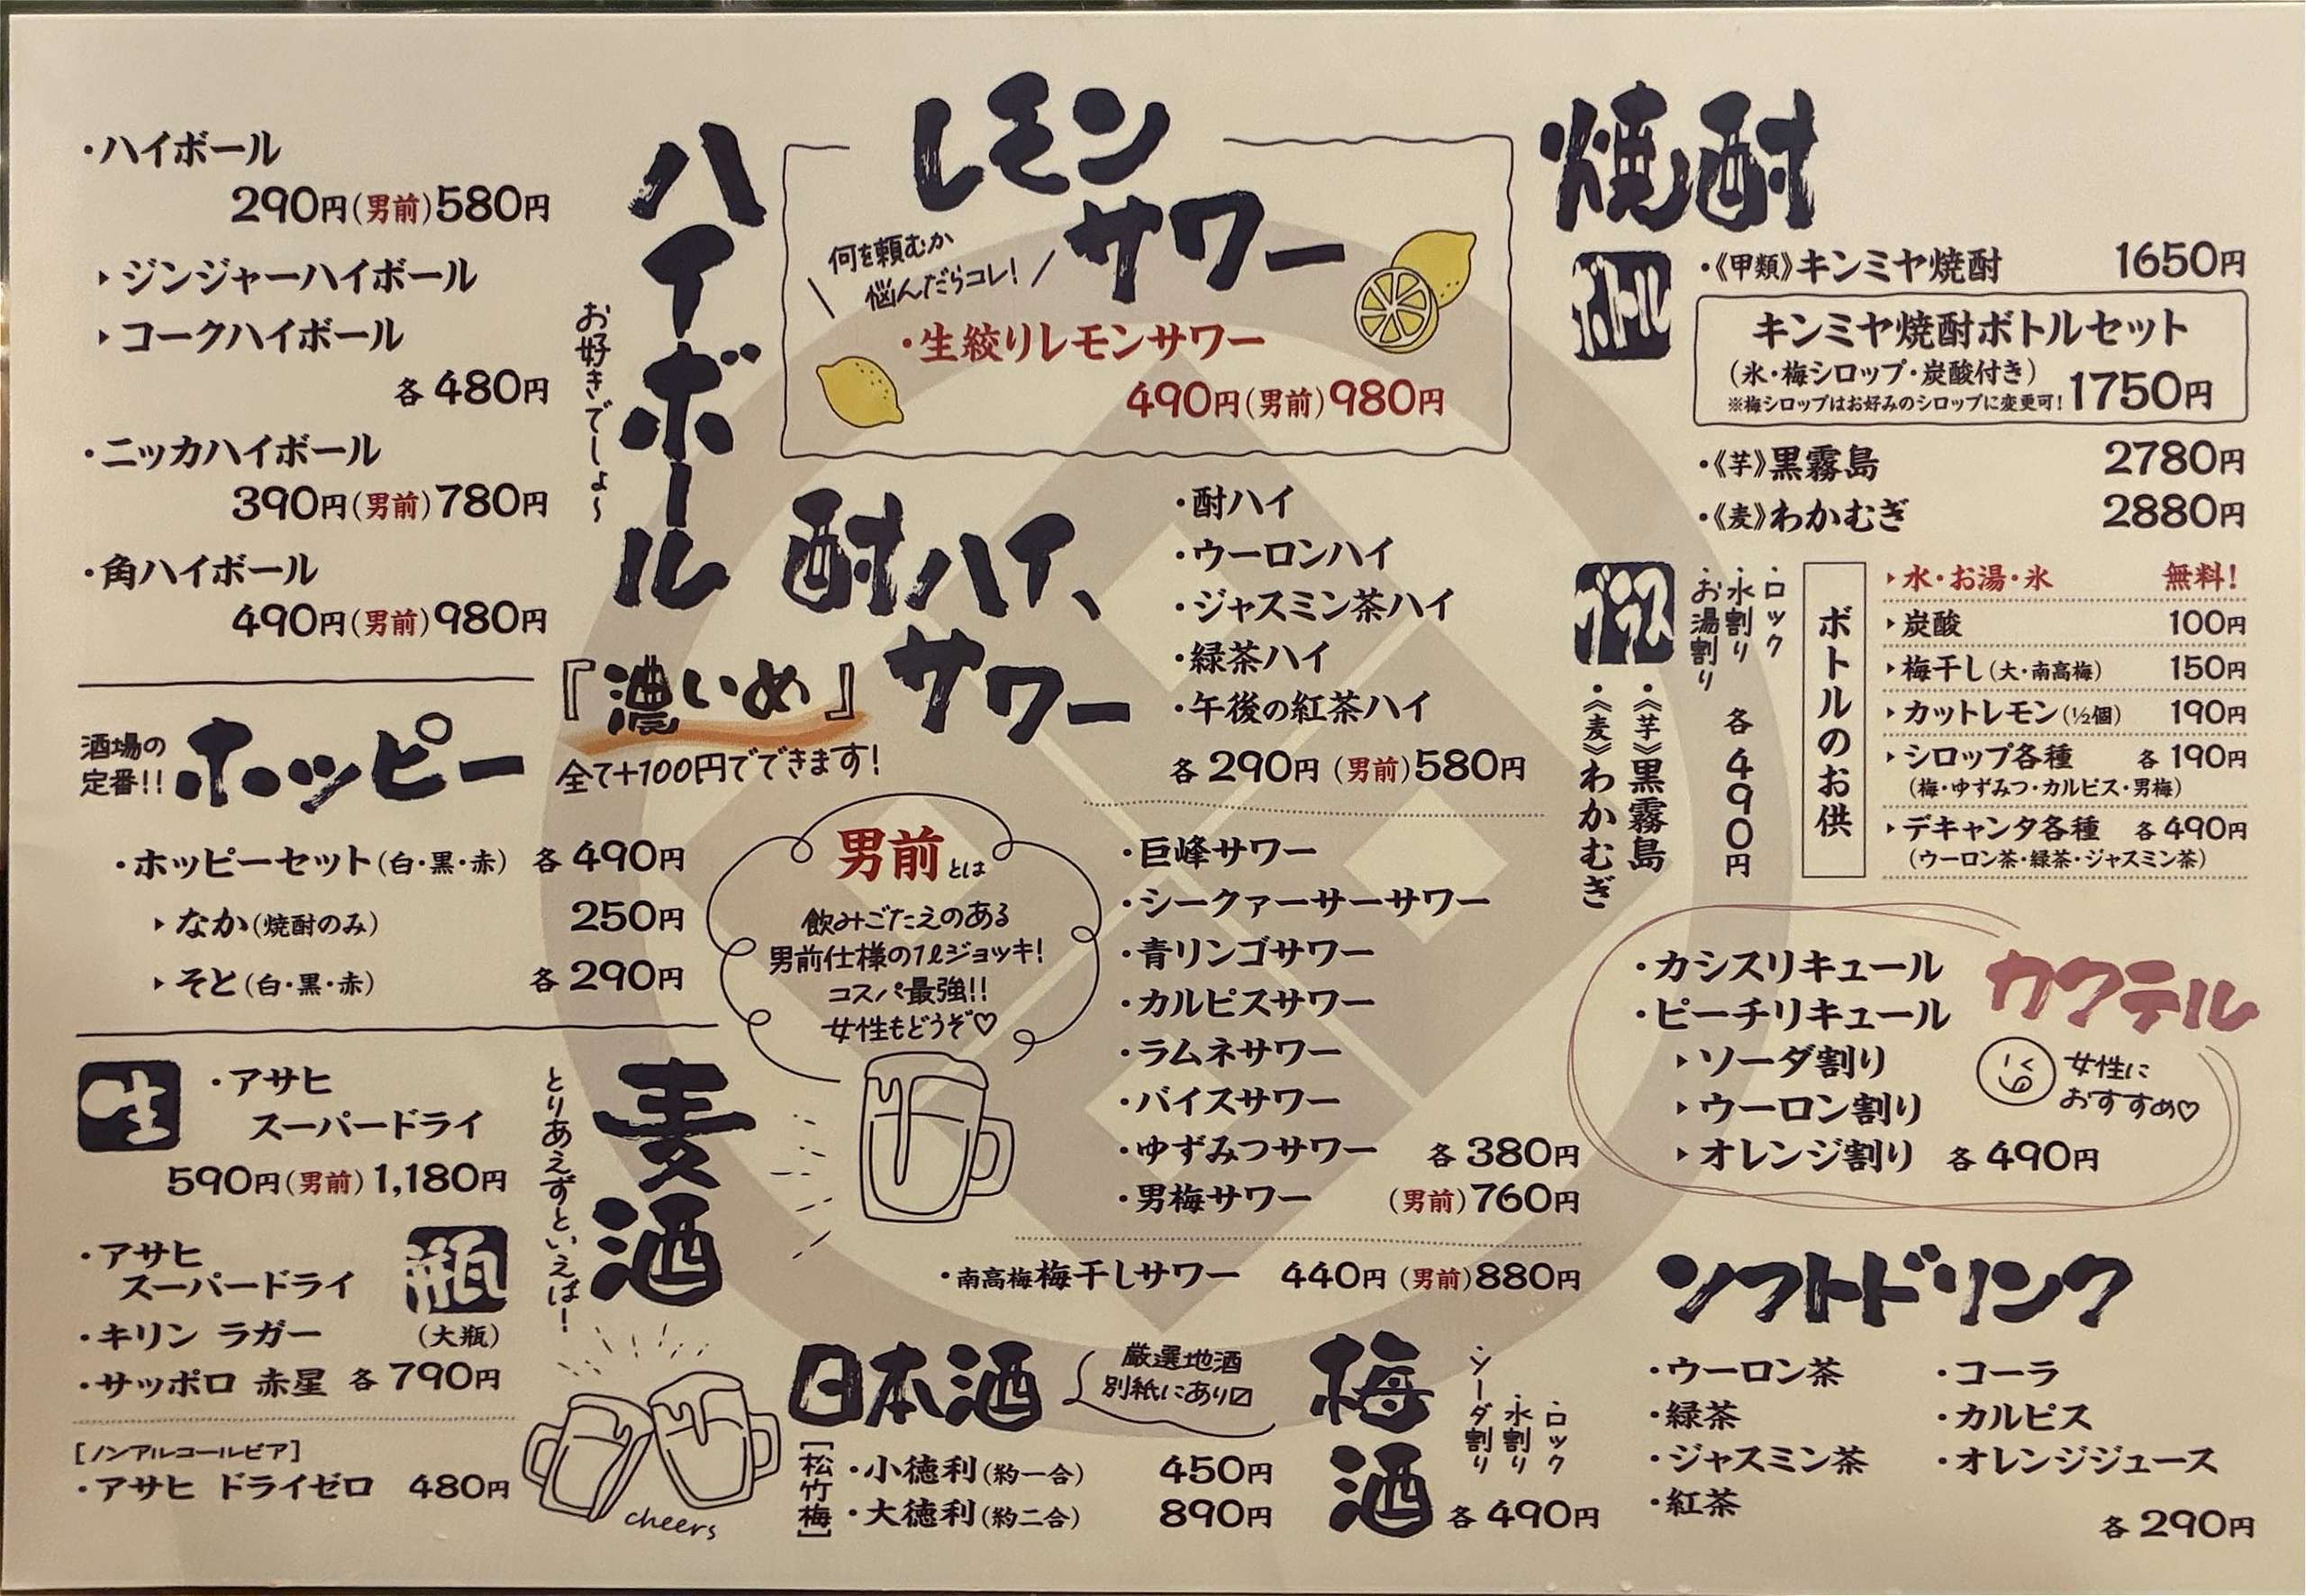 ハイボール
お好きでしょ〜
・ハイボール
290円(男前)580円
▸ジンジャーハイボール
▸コークハイボール
各480円
・ニッカハイボール
390円(男前)780円
・角ハイボール
490円(男前)980円
酒場の
定番!!
ホッピー
・ホッピーセット(白・黒・赤) 各490円
▸なか(焼酎のみ) 250円
▸そと(白・黒・赤) 各290円
麦酒
とりあえずといえば!
生
・アサヒ
スーパードライ
590円(男前)1,180円
瓶
(大瓶)
・アサヒ
スーパードライ
・キリン ラガー
・サッポロ 赤星 各790円
[ノンアルコールビア]
・アサヒ ドライゼロ 480円
cheers
レモン
サワー
何を頼むか
悩んだらコレ!
・生絞りレモンサワー
490円(男前)980円
酎ハイ、
サワー
『濃いめ』
全て+100円でできます!
・酎ハイ
・ウーロンハイ
・ジャスミン茶ハイ
・緑茶ハイ
・午後の紅茶ハイ
各290円(男前)580円
男前とは
飲みごたえのある
男前仕様の1ℓジョッキ!
コスパ最強!!
女性もどうぞ♡
・巨峰サワー
・シークァーサーサワー
・青リンゴサワー
・カルピスサワー
・ラムネサワー
・バイスサワー
・ゆずみつサワー 各380円
・男梅サワー (男前)760円
・南高梅梅干しサワー 440円(男前)880円
日本酒
厳選地酒
別紙にあり〼
[松竹梅]
・小徳利(約一合) 450円
・大徳利(約二合) 890円
梅酒
・ロック
・水割り
・ソーダ割り
各490円
焼酎
ボトル
・《甲類》キンミヤ焼酎 1650円
キンミヤ焼酎ボトルセット
(氷・梅シロップ・炭酸付き) 1750円
※梅シロップはお好みのシロップに変更可!
・《芋》黒霧島 2780円
・《麦》わかむぎ 2880円
・ロック
・水割り
・お湯割り
各490円
・《芋》黒霧島
・《麦》わかむぎ
ボトルのお供
▸水・お湯・氷 無料!
▸炭酸 100円
▸梅干し(大・南高梅) 150円
▸カットレモン(½個) 190円
▸シロップ各種 各190円
(梅・ゆずみつ・カルピス・男梅)
▸デキャンタ各種 各490円
(ウーロン茶・緑茶・ジャスミン茶)
カクテル
・カシスリキュール
・ピーチリキュール
▸ソーダ割り
▸ウーロン割り
▸オレンジ割り 各490円
女性に
おすすめ♡
ソフトドリンク
・ウーロン茶
・緑茶
・ジャスミン茶
・紅茶
・コーラ
・カルピス
・オレンジジュース
各290円